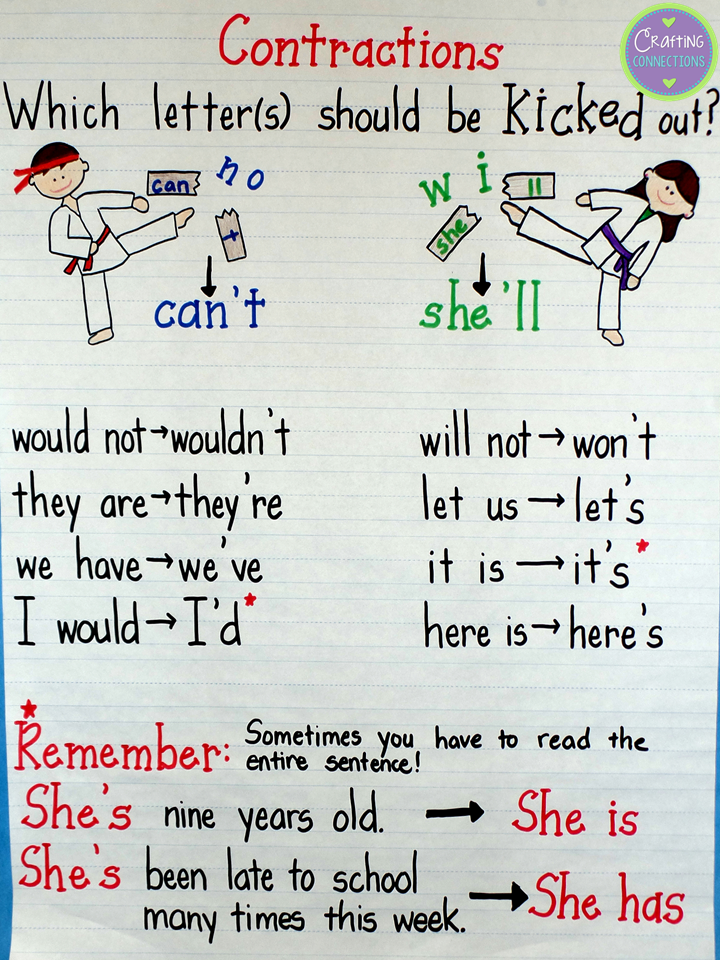 Crafting
CONNECTIONS
Contractions
Which letter(s) should be Kicked out?
can no
t
can't
w i ll
she
she'll
would not→wouldn't
they are→they're
we have→we've
I would→I'd*
will not→won't
let us→let's
it is→it's*
here is→here's
*
Remember: Sometimes you have to read the
entire sentence!
She's nine years old. → She is
She's been late to school
many times this week. → She has